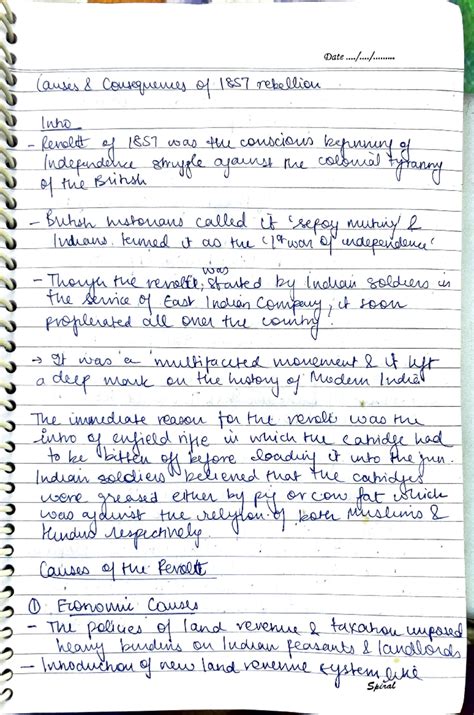 Date ..../..../.........
Causes & Consequences of 1857 rebellion
Intro
- Revolt of 1857 was the conscious beginning of
Independence struggle against the colonial tyranny
of the British
- British historians called it 'sepoy mutiny' &
Indians termed it as the '1st war of independence'
- Though the revolt was started by Indian soldiers in
the service of East Indian Company, it soon
all over the country.
→ It was a multifaceted movement & it left
a deep mark on the history of Modern India
The immediate reason for the revolt was the
intro of enfield rifle in which the catridge had
to be bitten off before loading it into the gun.
Indian soldiers believed that the catridges
were greased either by pig or cow fat which
was against the religion of both Muslims &
Hindus respectively.
Causes of the Revolt
① Economic Causes
- The policies of land revenue & taxation imposed
heavy burdens on Indian peasants & landlords
- Introduction of new land revenue system like
Spiral